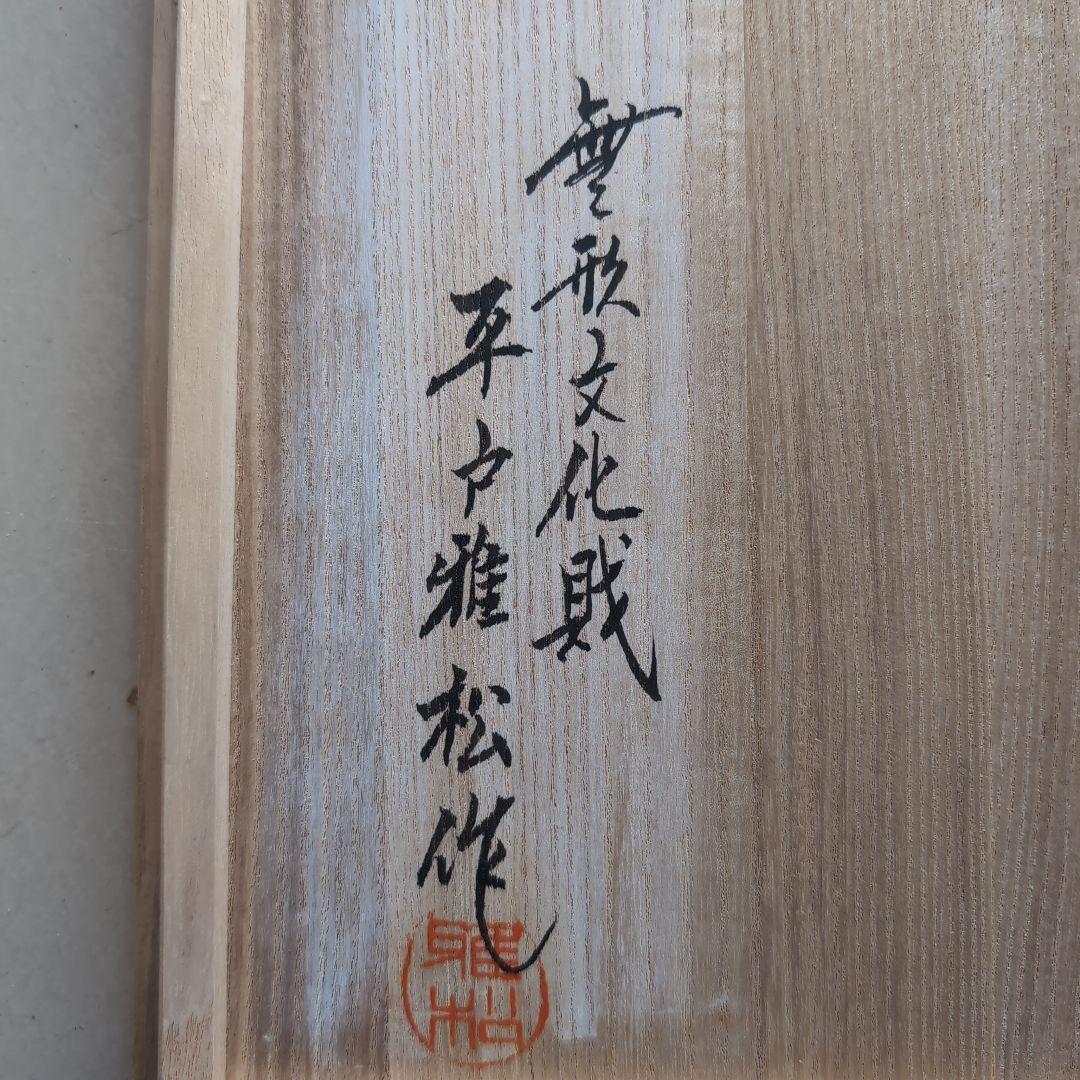 無形文化財
平戸雅松作
雅松